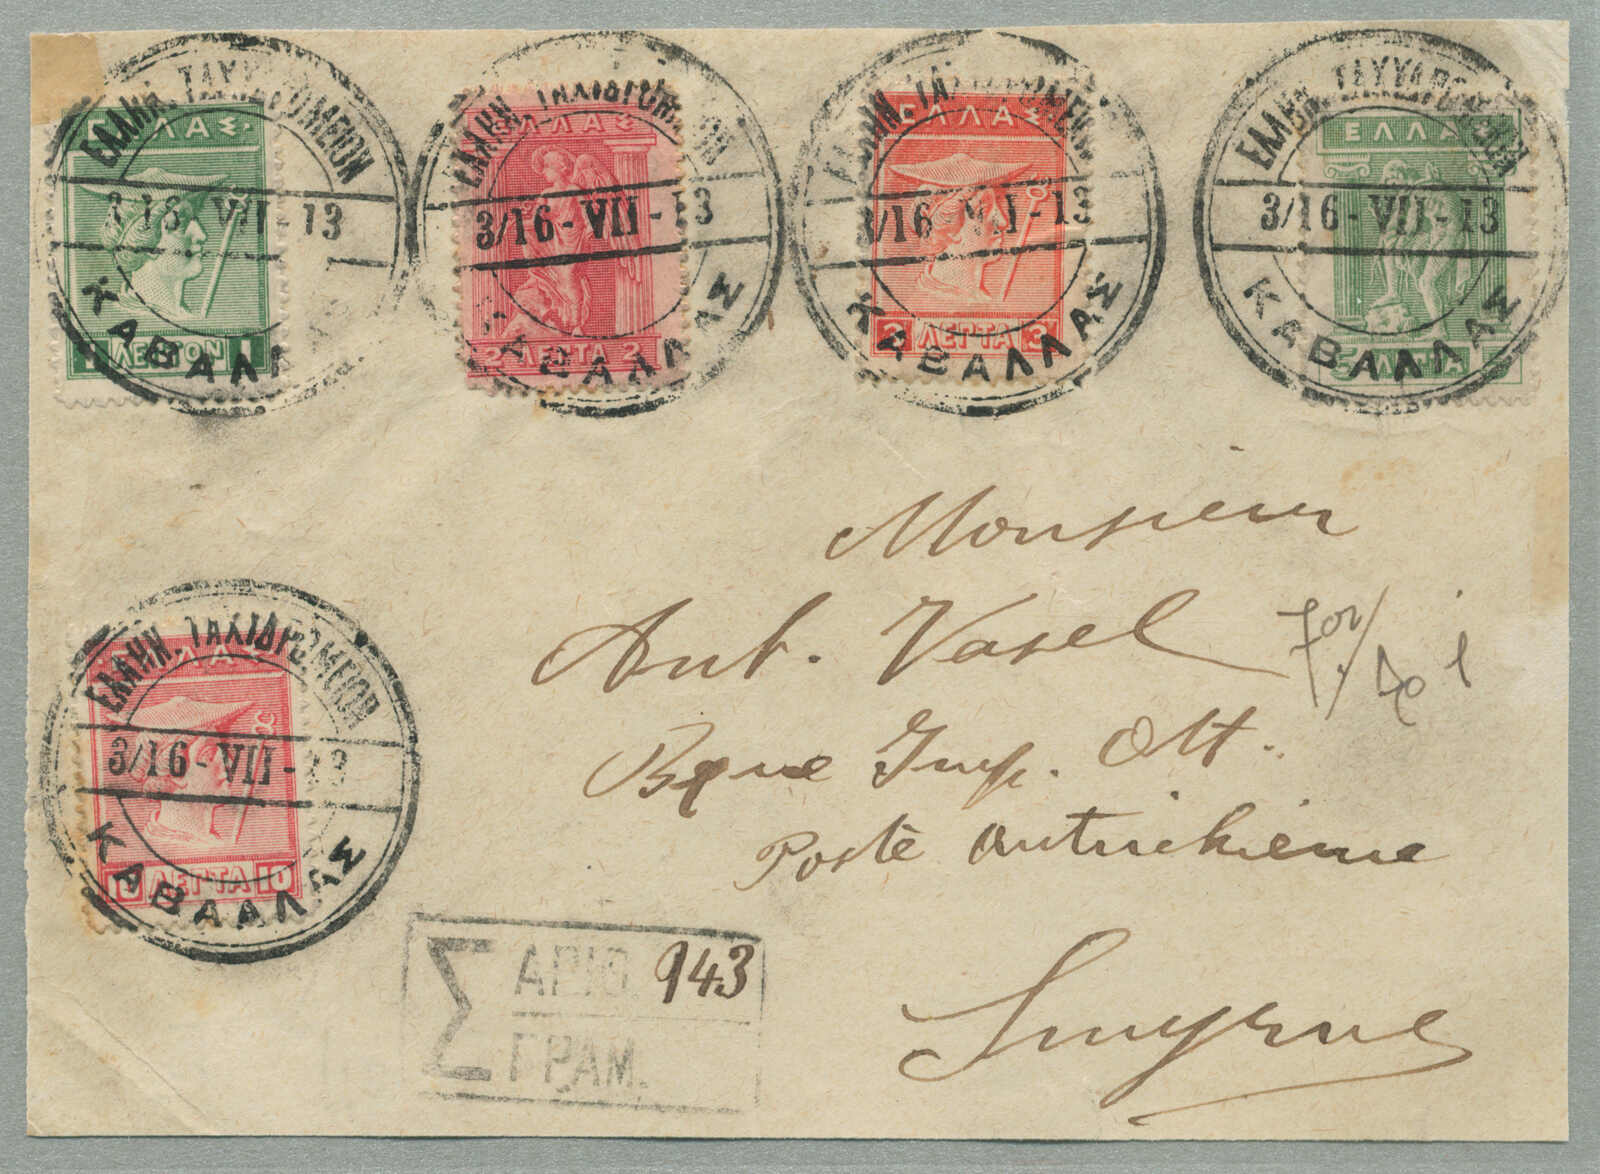 ΕΛΛΗΝ. ΤΑΧΥΔΡΟΜΕΙΟΝ
ΕΛΛΑΣ
3/16-VII-13
1 ΛΕΠΤΟΝ 1
ΚΑΒΑΛΛΑΣ
ΕΛΛΗΝ. ΤΑΧΙΔΡΟΜΕΙΟΝ
ΕΛΛΑΣ
3/16-VII-13
2 ΛΕΠΤΑ 2
ΚΑΒΑΛΛΑΣ
ΕΛΛΗΝ. ΤΑΧΙΔΡΟΜΕΙΟΝ
ΕΛΛΑΣ
3/16-VII-13
3 ΛΕΠΤΑ 3
ΚΑΒΑΛΛΑΣ
ΕΛΛΗΝ. ΤΑΧΥΔΡΟΜΕΙΟΝ
ΕΛΛΑΣ
3/16-VII-13
5 ΛΕΠΤΑ
ΚΑΒΑΛΛΑΣ
Monsieur
Ant. Vasel
Bque Imp. Ott.
Poste Autrichienne
Smyrne
ΕΛΛΗΝ. ΤΑΧΙΔΡΟΜΕΙΟΝ
ΕΛΛΑΣ
3/16-VII-13
10 ΛΕΠΤΑ 10
ΚΑΒΑΛΛΑΣ
Σ ΑΡΙΘ. 943
ΓΡΑΜ.